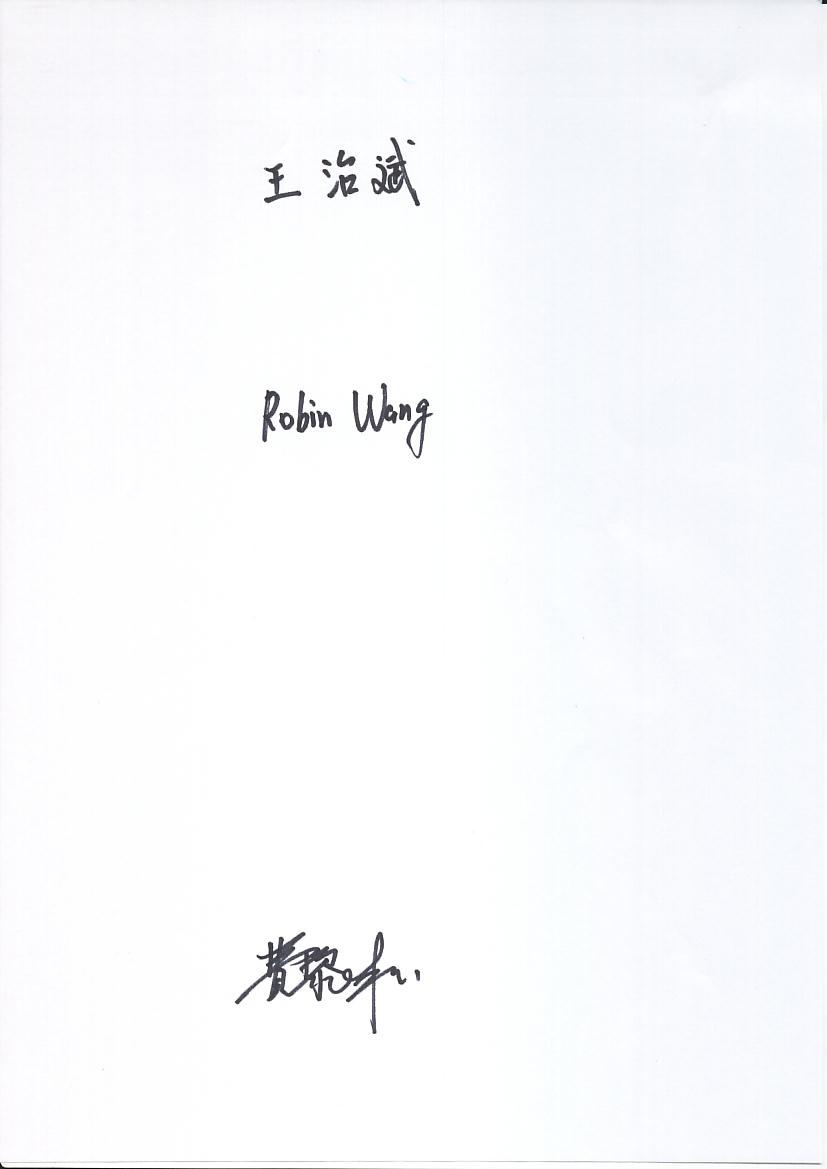 王治斌
Robin Wang
费黎